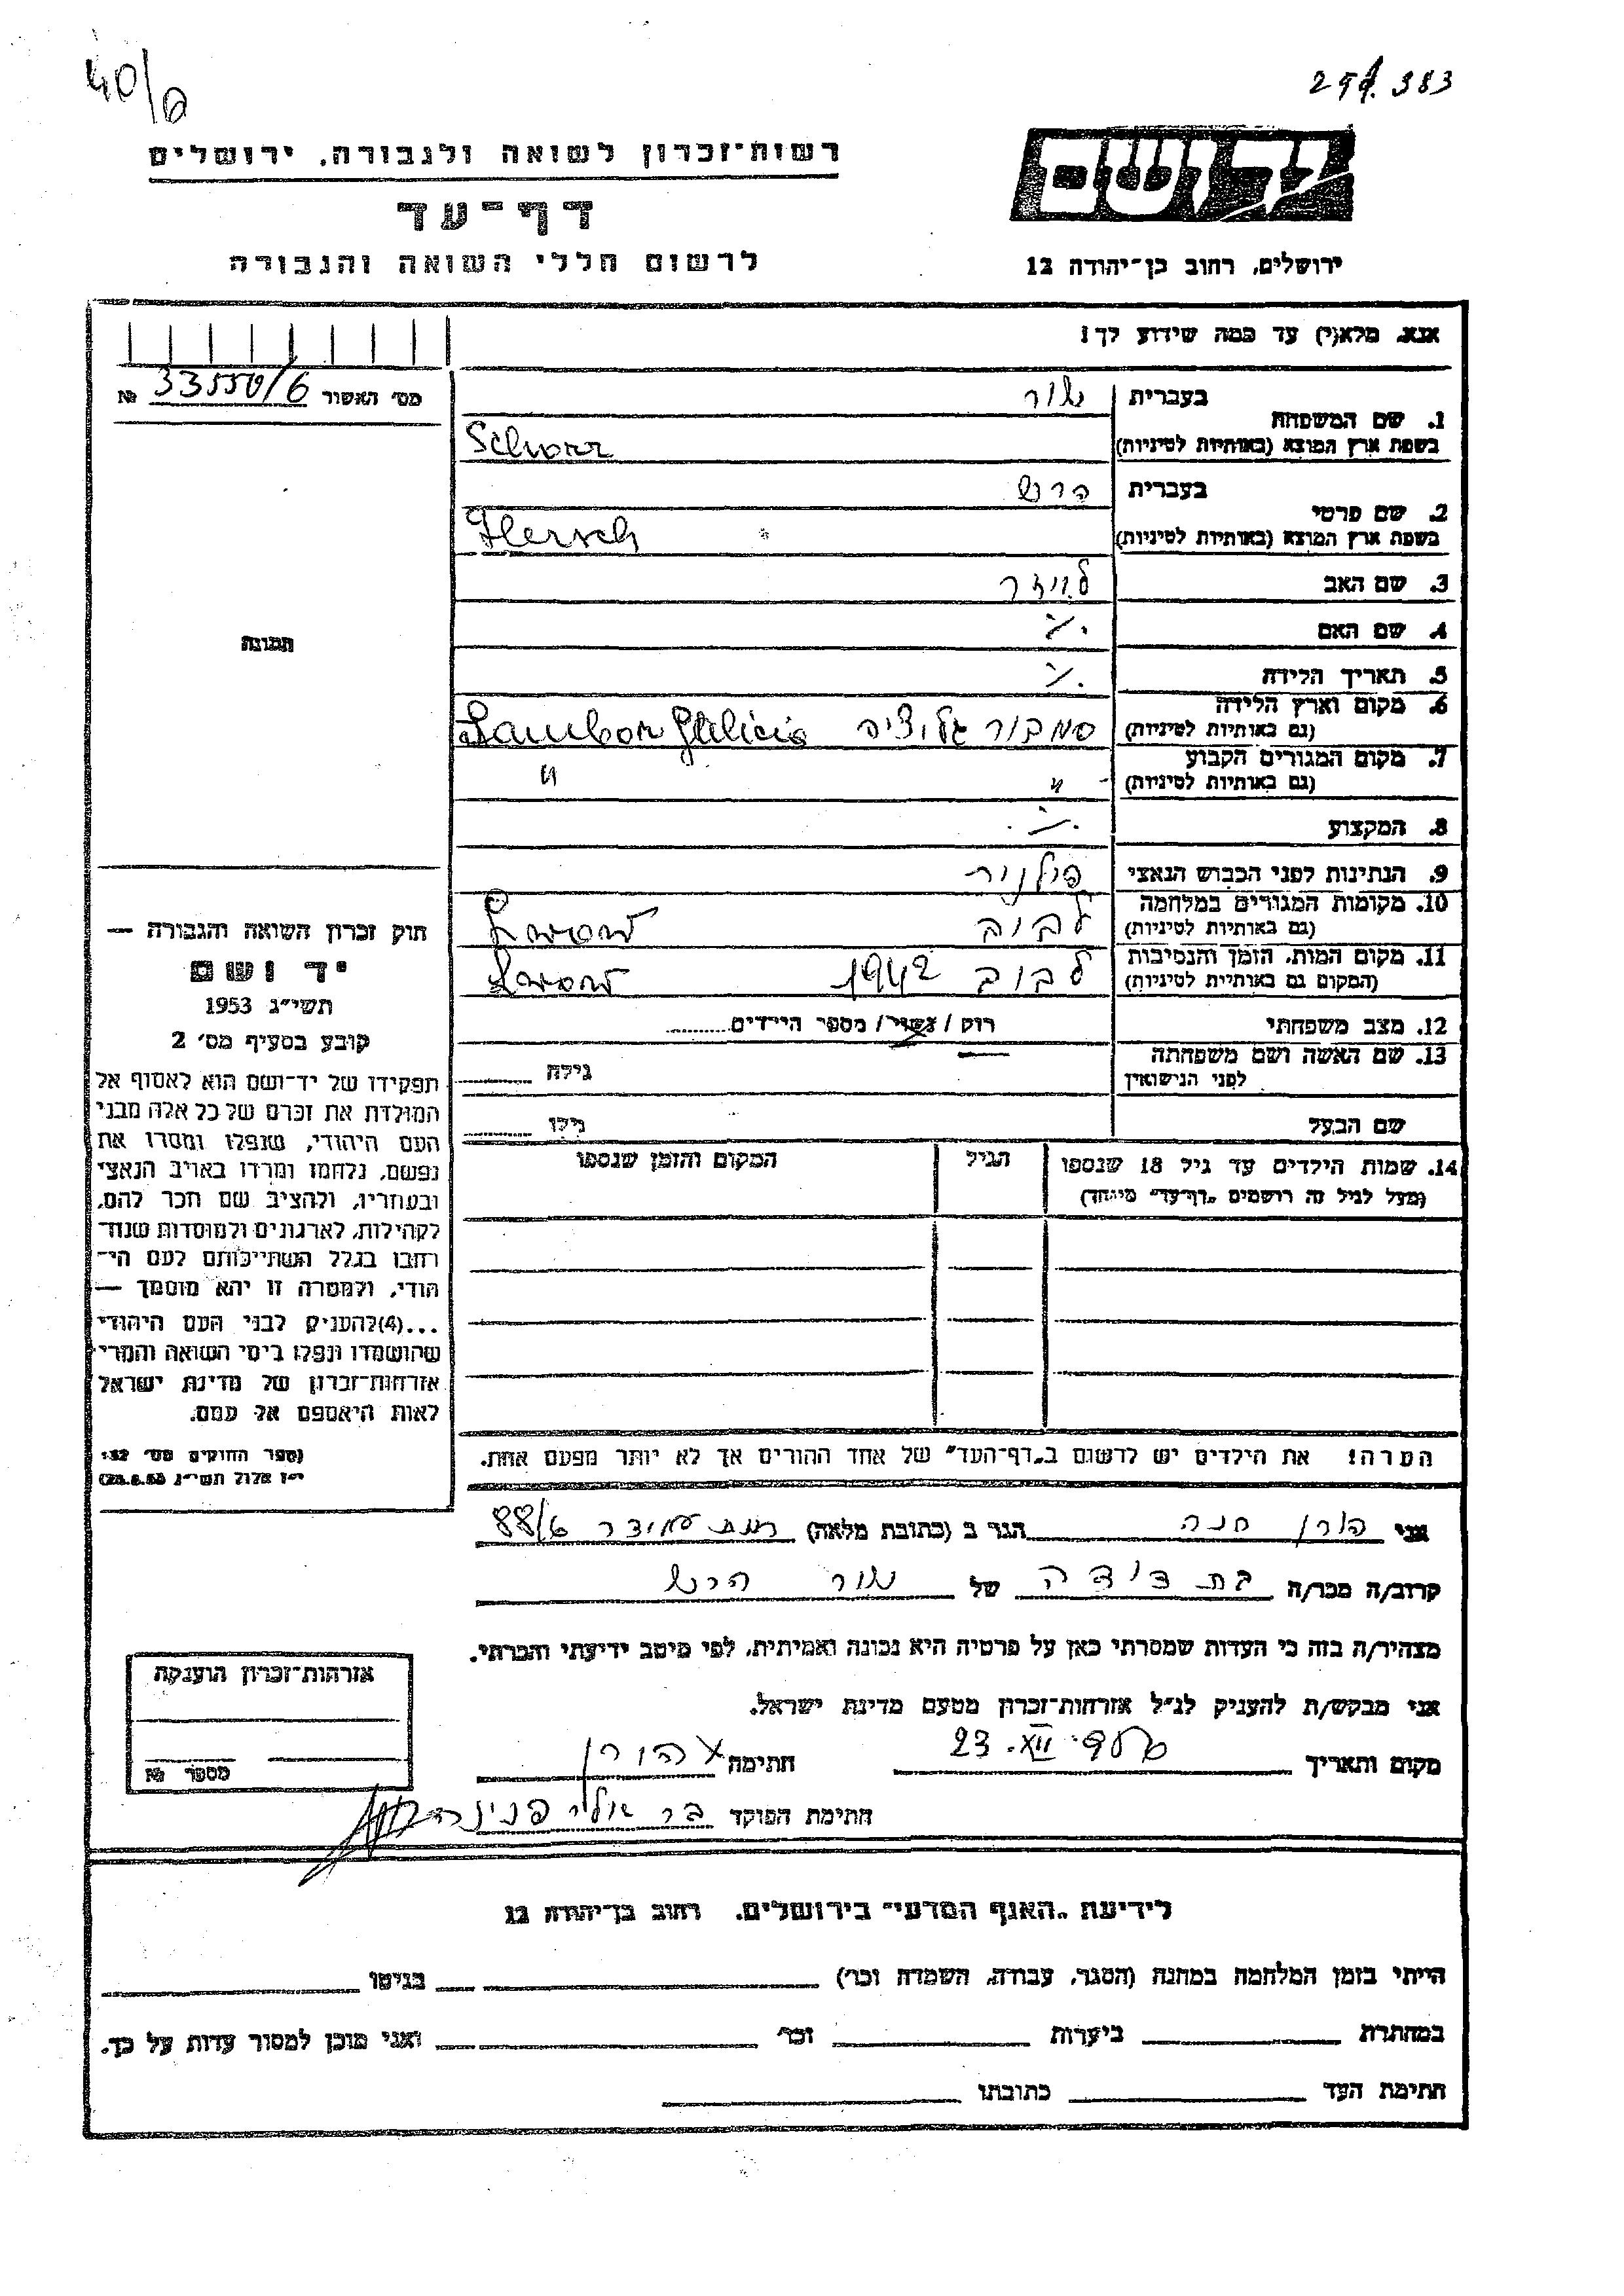 40/6
297.383
רשות־זכרון לשואה ולגבורה, ירושלים
דף־עד
לרשום חללי השואה והגבורה
יד ושם
ירושלים, רחוב בן־יהודה 12
אנא, מלא(י) עד כמה שידוע לך!
מס׳ האשור 33550/6 №
1. שם המשפחה
בעברית שור
בשפת ארץ המוצא (באותיות לטיניות) Schorr
2. שם פרטי
בעברית הרש
בשפת ארץ המוצא (באותיות לטיניות) Hersch
3. שם האב לייזר
4. שם האם ./.
5. תאריך הלידה ./.
6. מקום וארץ הלידה
(גם באותיות לטיניות) סמבור גליציה Sambor Galicia
7. מקום המגורים הקבוע
(גם באותיות לטיניות) " "
8. המקצוע ./.
9. הנתינות לפני הכבוש הנאצי פולנית
10. מקומות המגורים במלחמה
(גם באותיות לטיניות) לבוב Lwow
11. מקום המות, הזמן והנסיבות
(המקום גם באותיות לטיניות) לבוב 1942 Lwow
12. מצב משפחתי רוק / נשוי / מספר הילדים
13. שם האשה ושם משפחתה
לפני הנישואין גילה
שם הבעל גילו
14. שמות הילדים עד גיל 18 שנספו הגיל המקום והזמן שנספו
(מעל לגיל זה רושמים „דף־עד״ מיוחד)
הערה! את הילדים יש לרשום ב„דף־העד״ של אחד ההורים אך לא יותר מפעם אחת.
תמונה
חוק זכרון השואה והגבורה —
יד ושם
תשי״ג 1953
קובע בסעיף מס׳ 2
תפקידו של יד־ושם הוא לאסוף אל
המולדת את זכרם של כל אלה מבני
העם היהודי, שנפלו ומסרו את
נפשם, נלחמו ומרדו באויב הנאצי
ובעוזריו, ולהציב שם וזכר להם,
לקהילות, לארגונים ולמוסדות שנח־
רבו בגלל השתייכותם לעם הי־
הודי, ולמטרה זו יהא מוסמך —
...(4)להעניק לבני העם היהודי
שהושמדו ונפלו בימי השואה והמרי
אזרחות־זכרון של מדינת ישראל
לאות היאספם אל עמם.
(ספר החוקים מס׳ 132
י״ז אלול תשי״ג (28.8.53)
אני הורן חנה הגר ב (כתובת מלאה) רמת עמידר 88/6
קרוב/ה מכר/ה בת דודה של שור הרש
מצהיר/ה בזה כי העדות שמסרתי כאן על פרטיה היא נכונה ואמיתית, לפי מיטב ידיעתי והכרתי.
אני מבקש/ת להעניק לנ״ל אזרחות־זכרון מטעם מדינת ישראל.
מקום ותאריך 23.XII חתימה הורן
חתימת הפוקד
אזרחות־זכרון הוענקה
מספר №
לידיעת „האגף המדעי״ בירושלים, רחוב בן־יהודה 12
הייתי בזמן המלחמה במחנה (הסגר, עבודה, השמדה וכו׳) בגיטו
במחתרת ביערות וכו׳ ואני מוכן למסור עדות על כך.
חתימת העד כתובתו